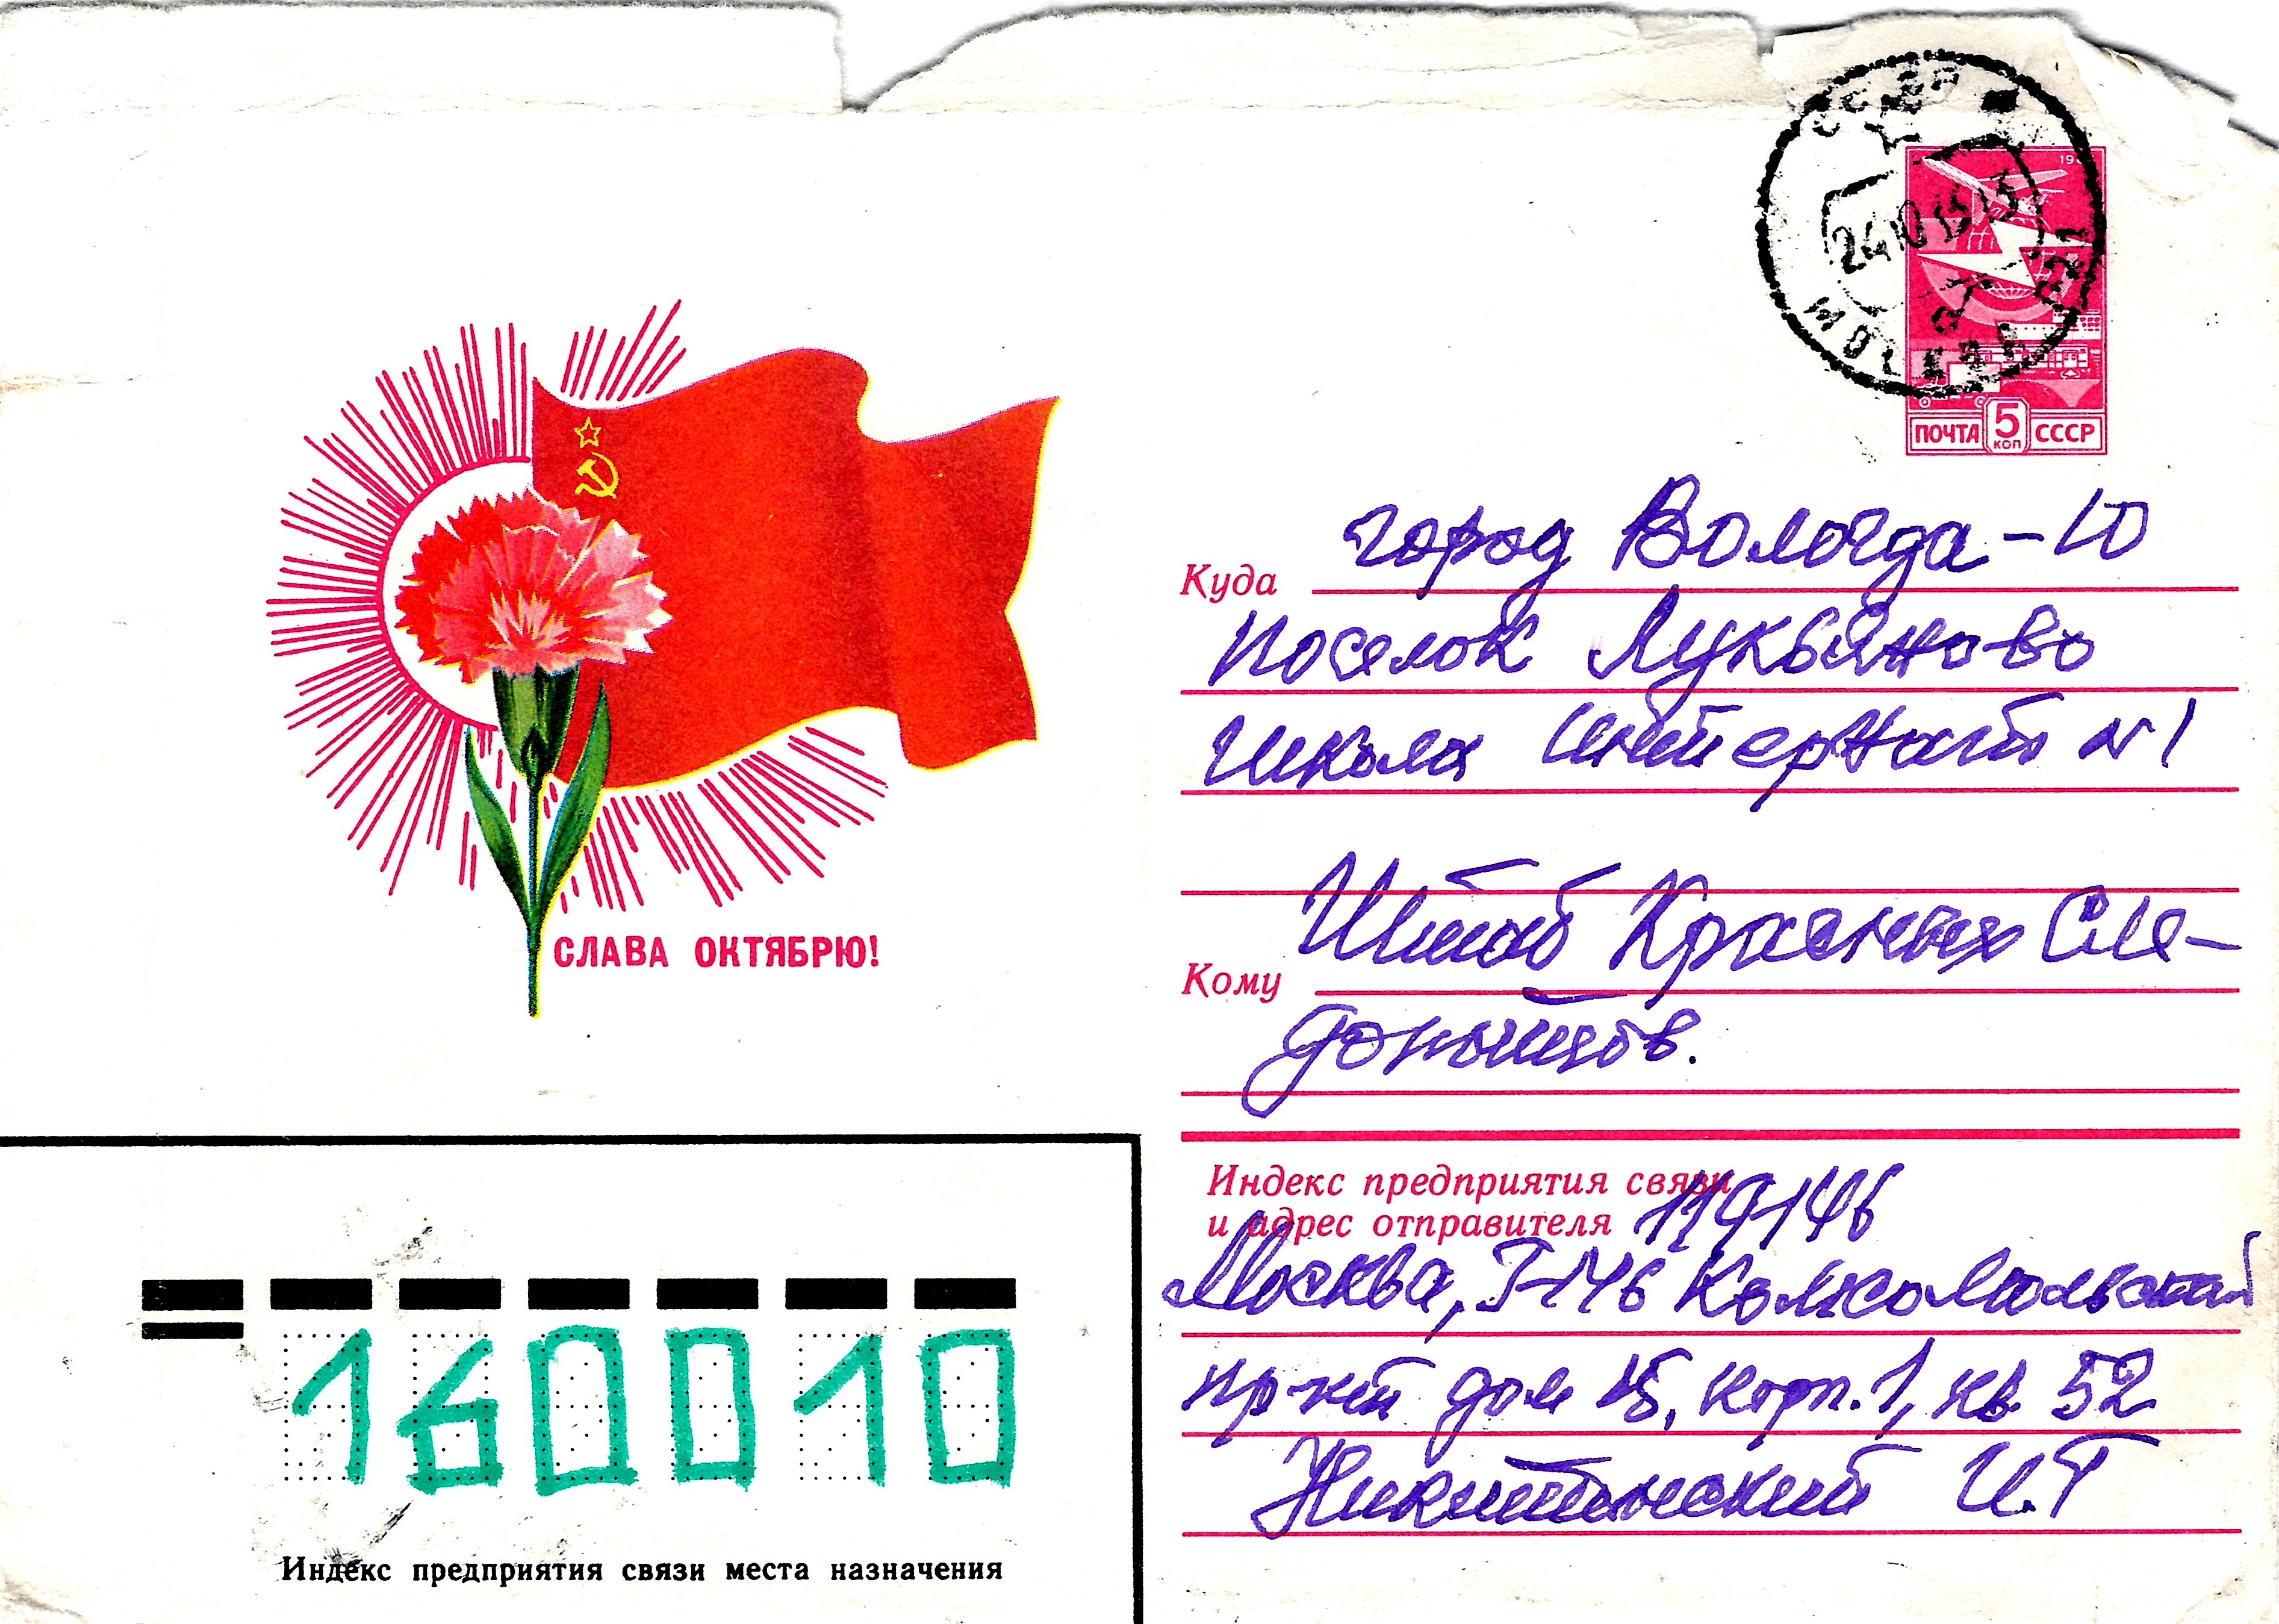 СССР
МОСКВА
24 10
ПОЧТА 5 КОП СССР
город Вологда-10
Куда
поселок Лукьяново
школа интернат №1
Штаб Красных Сле-
Кому
допытов.
СЛАВА ОКТЯБРЮ!
Индекс предприятия связи
и адрес отправителя 119146
Москва, Г-146 Комсомольский
пр-кт дом 15, корп. 1, кв. 52
Никитинский И.Г
160010
Индекс предприятия связи места назначения